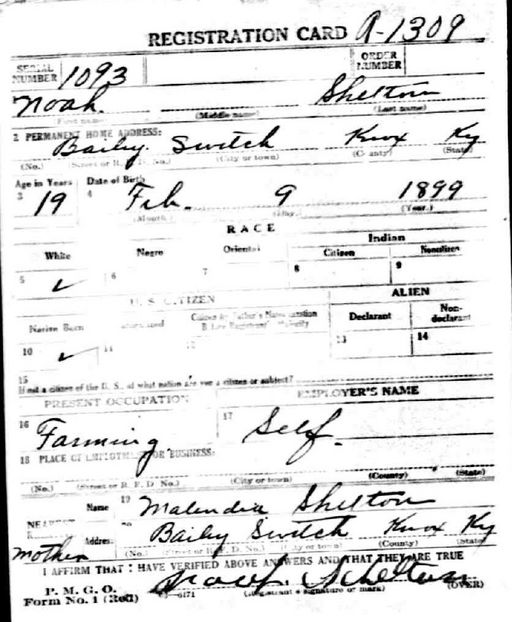 REGISTRATION CARD A-1309
SERIAL NUMBER 1093 ORDER NUMBER
Noah Shelton
First name (Middle name) (Last name)
2 PERMANENT HOME ADDRESS:
Baily Switch Knox Ky
(No.) (Street or R. F. D. No.) (City or town) (County) (State)
Age in Years Date of Birth
3 19 4 Feb. 9 1899
(Month.) (Day.) (Year.)
RACE
White Negro Oriental Indian
Citizen Noncitizen
5 ✓ 6 7 8 9
U. S. CITIZEN ALIEN
Native Born Citizen by Father's Naturalization Declarant Non-declarant
10 ✓ 11 12 13 14
15
If not a citizen of the U. S., of what nation are you a citizen or subject?
PRESENT OCCUPATION EMPLOYER'S NAME
16 Farming 17 Self.
18 PLACE OF EMPLOYMENT OR BUSINESS:
(No.) (Street or R. F. D. No.) (City or town) (County) (State)
NEAREST Name 19 Malendia Shelton
Address 20 Baily Switch Knox Ky
Mother (No.) (Street or R. F. D. No.) (City or town) (County) (State)
I AFFIRM THAT I HAVE VERIFIED ABOVE ANSWERS AND THAT THEY ARE TRUE
P. M. G. O.
Form No. 1 (Red) Shelton
(Registrant's signature or mark) (OVER)